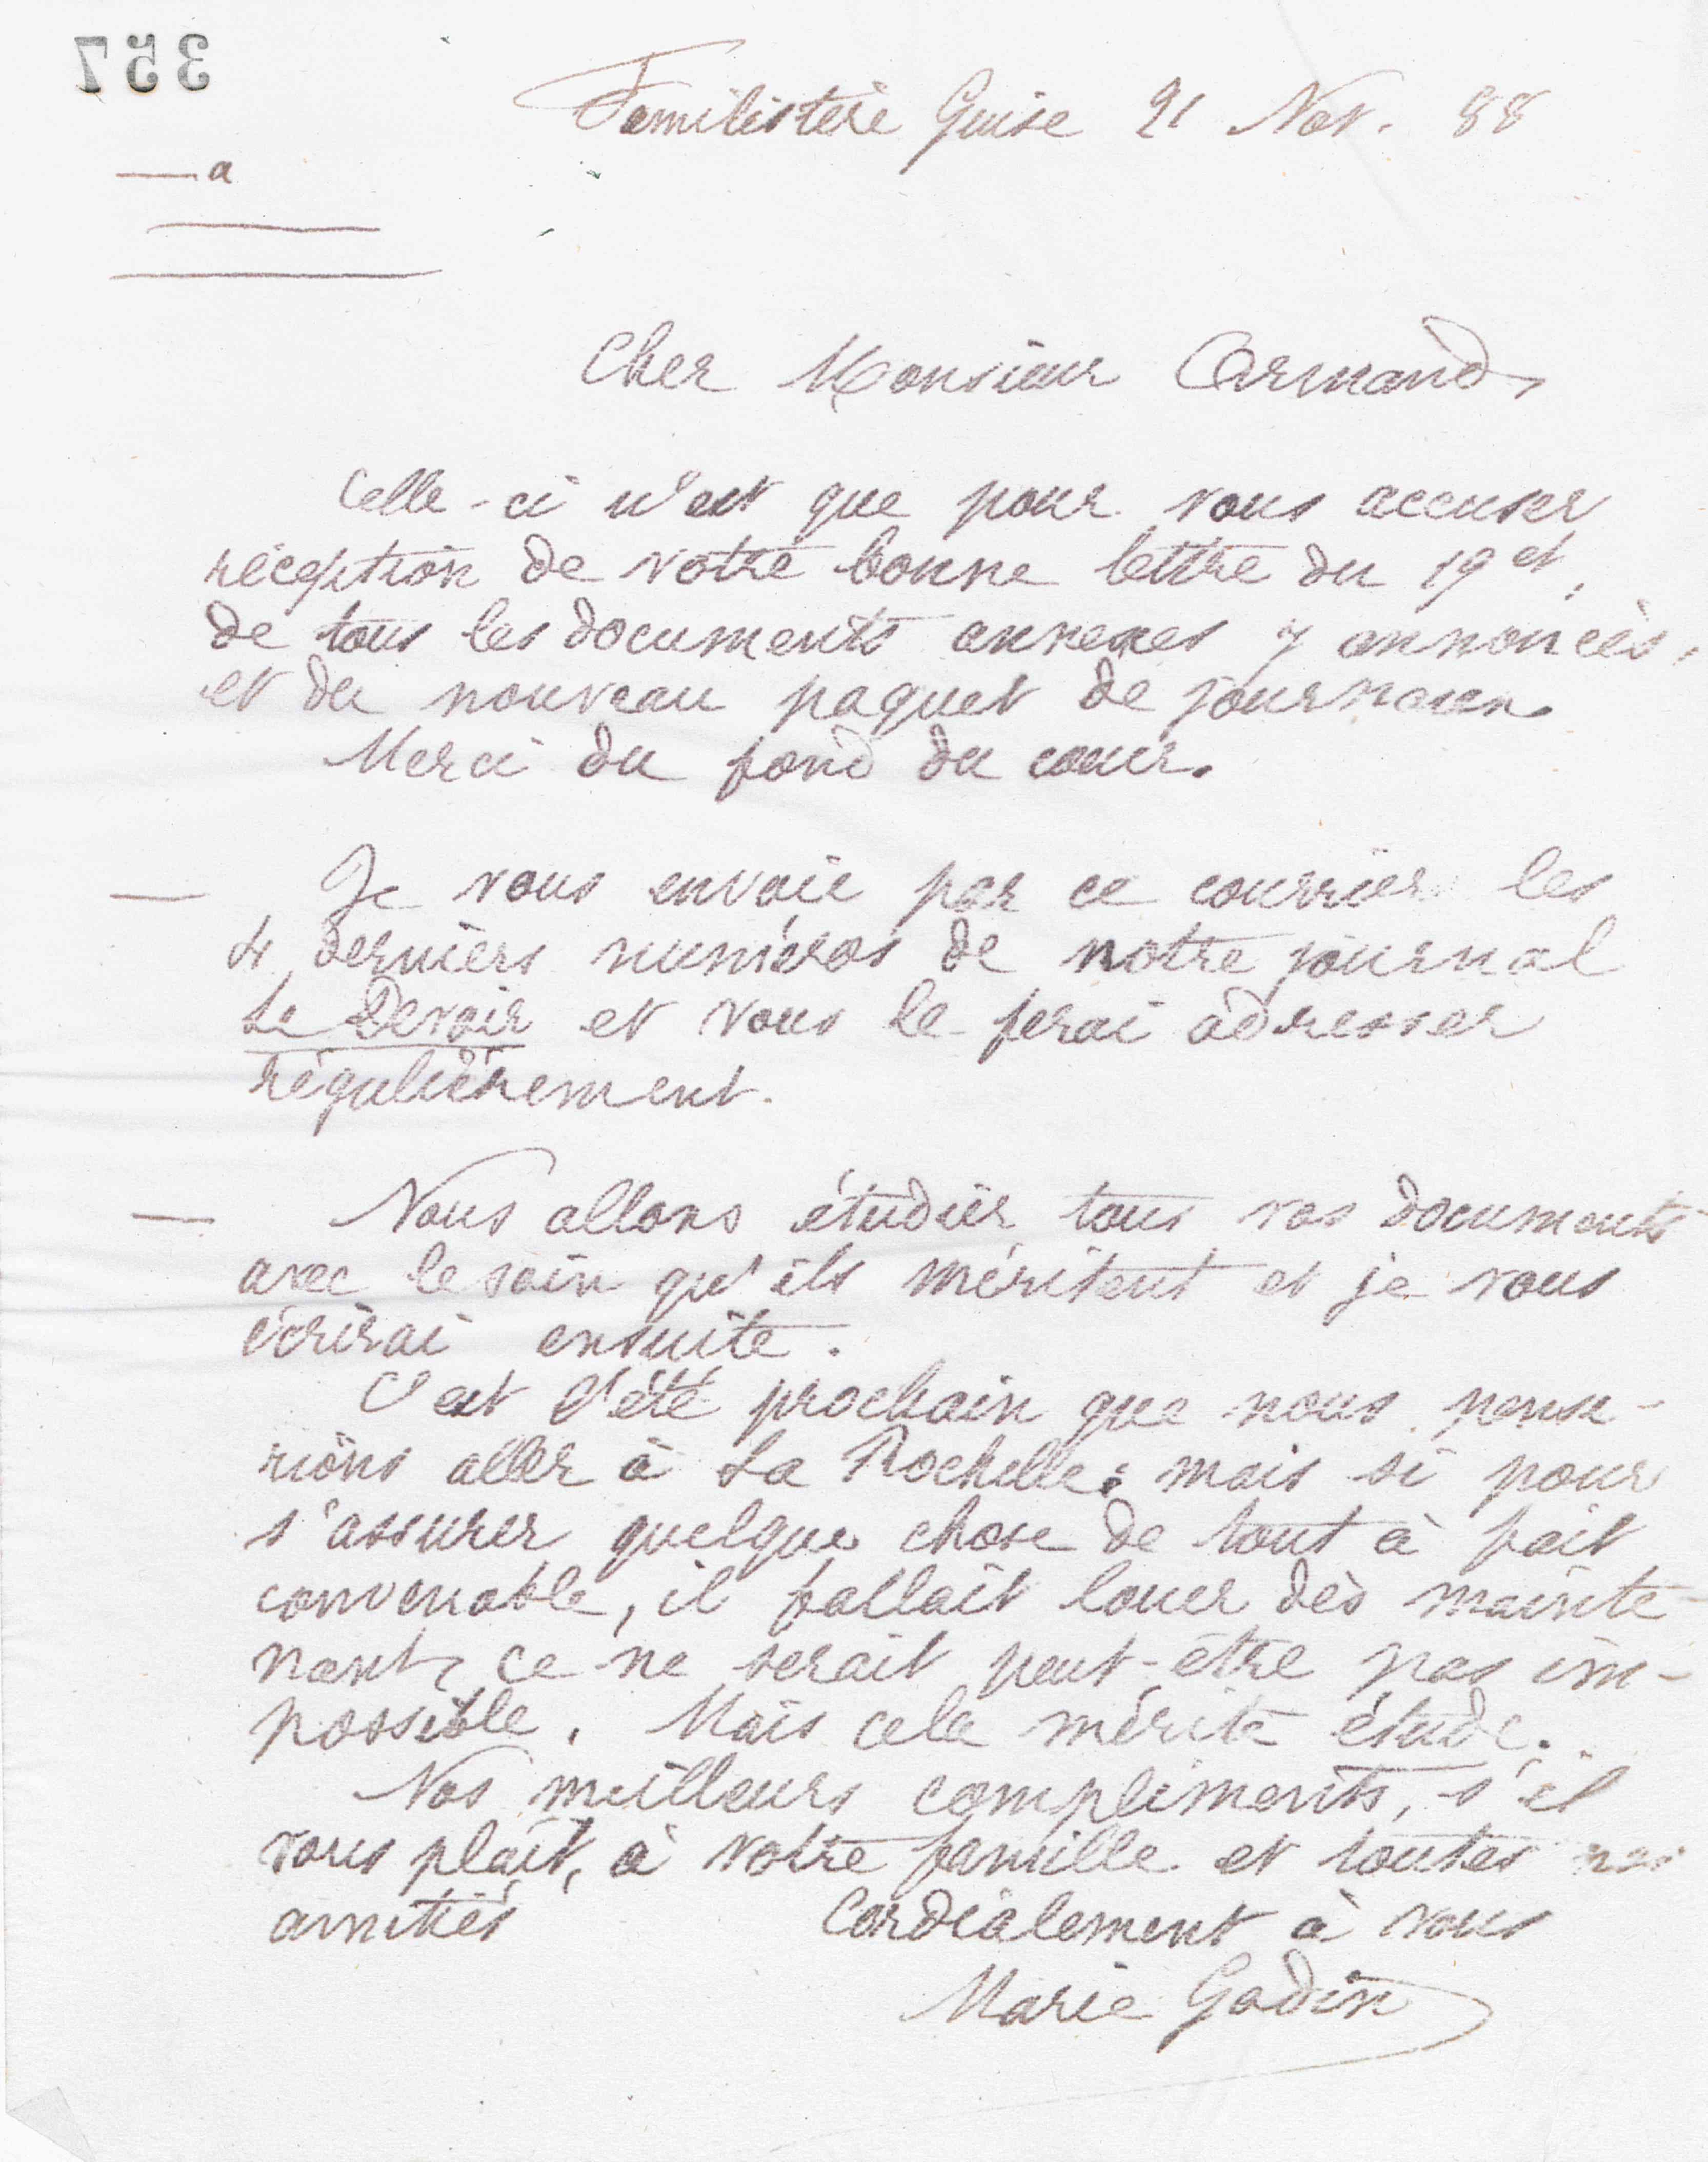 357
Familistère Guise 21 Nov. 88
a
Cher Monsieur Armand,
Celle-ci n'est que pour vous accuser
réception de votre bonne lettre du 19 ct,
de tous les documents annexes y annoncés,
et du nouveau paquet de journaux.
Merci du fond du cœur.
— Je vous envoie par ce courrier les
4 derniers numéros de notre journal
Le Devoir et vous le ferai adresser
régulièrement.
— Nous allons étudier tous vos documents
avec le soin qu'ils méritent et je vous
écrirai ensuite.
C'est l'été prochain que nous pense-
rions aller à La Rochelle; mais si pour
s'assurer quelque chose de tout à fait
convenable, il fallait louer dès mainte-
nant, ce ne serait peut-être pas im-
possible. Mais cela mérite étude.
Nos meilleurs compliments, s'il
vous plaît, à votre famille et toutes nos
amitiés
Cordialement à vous
Marie Godin